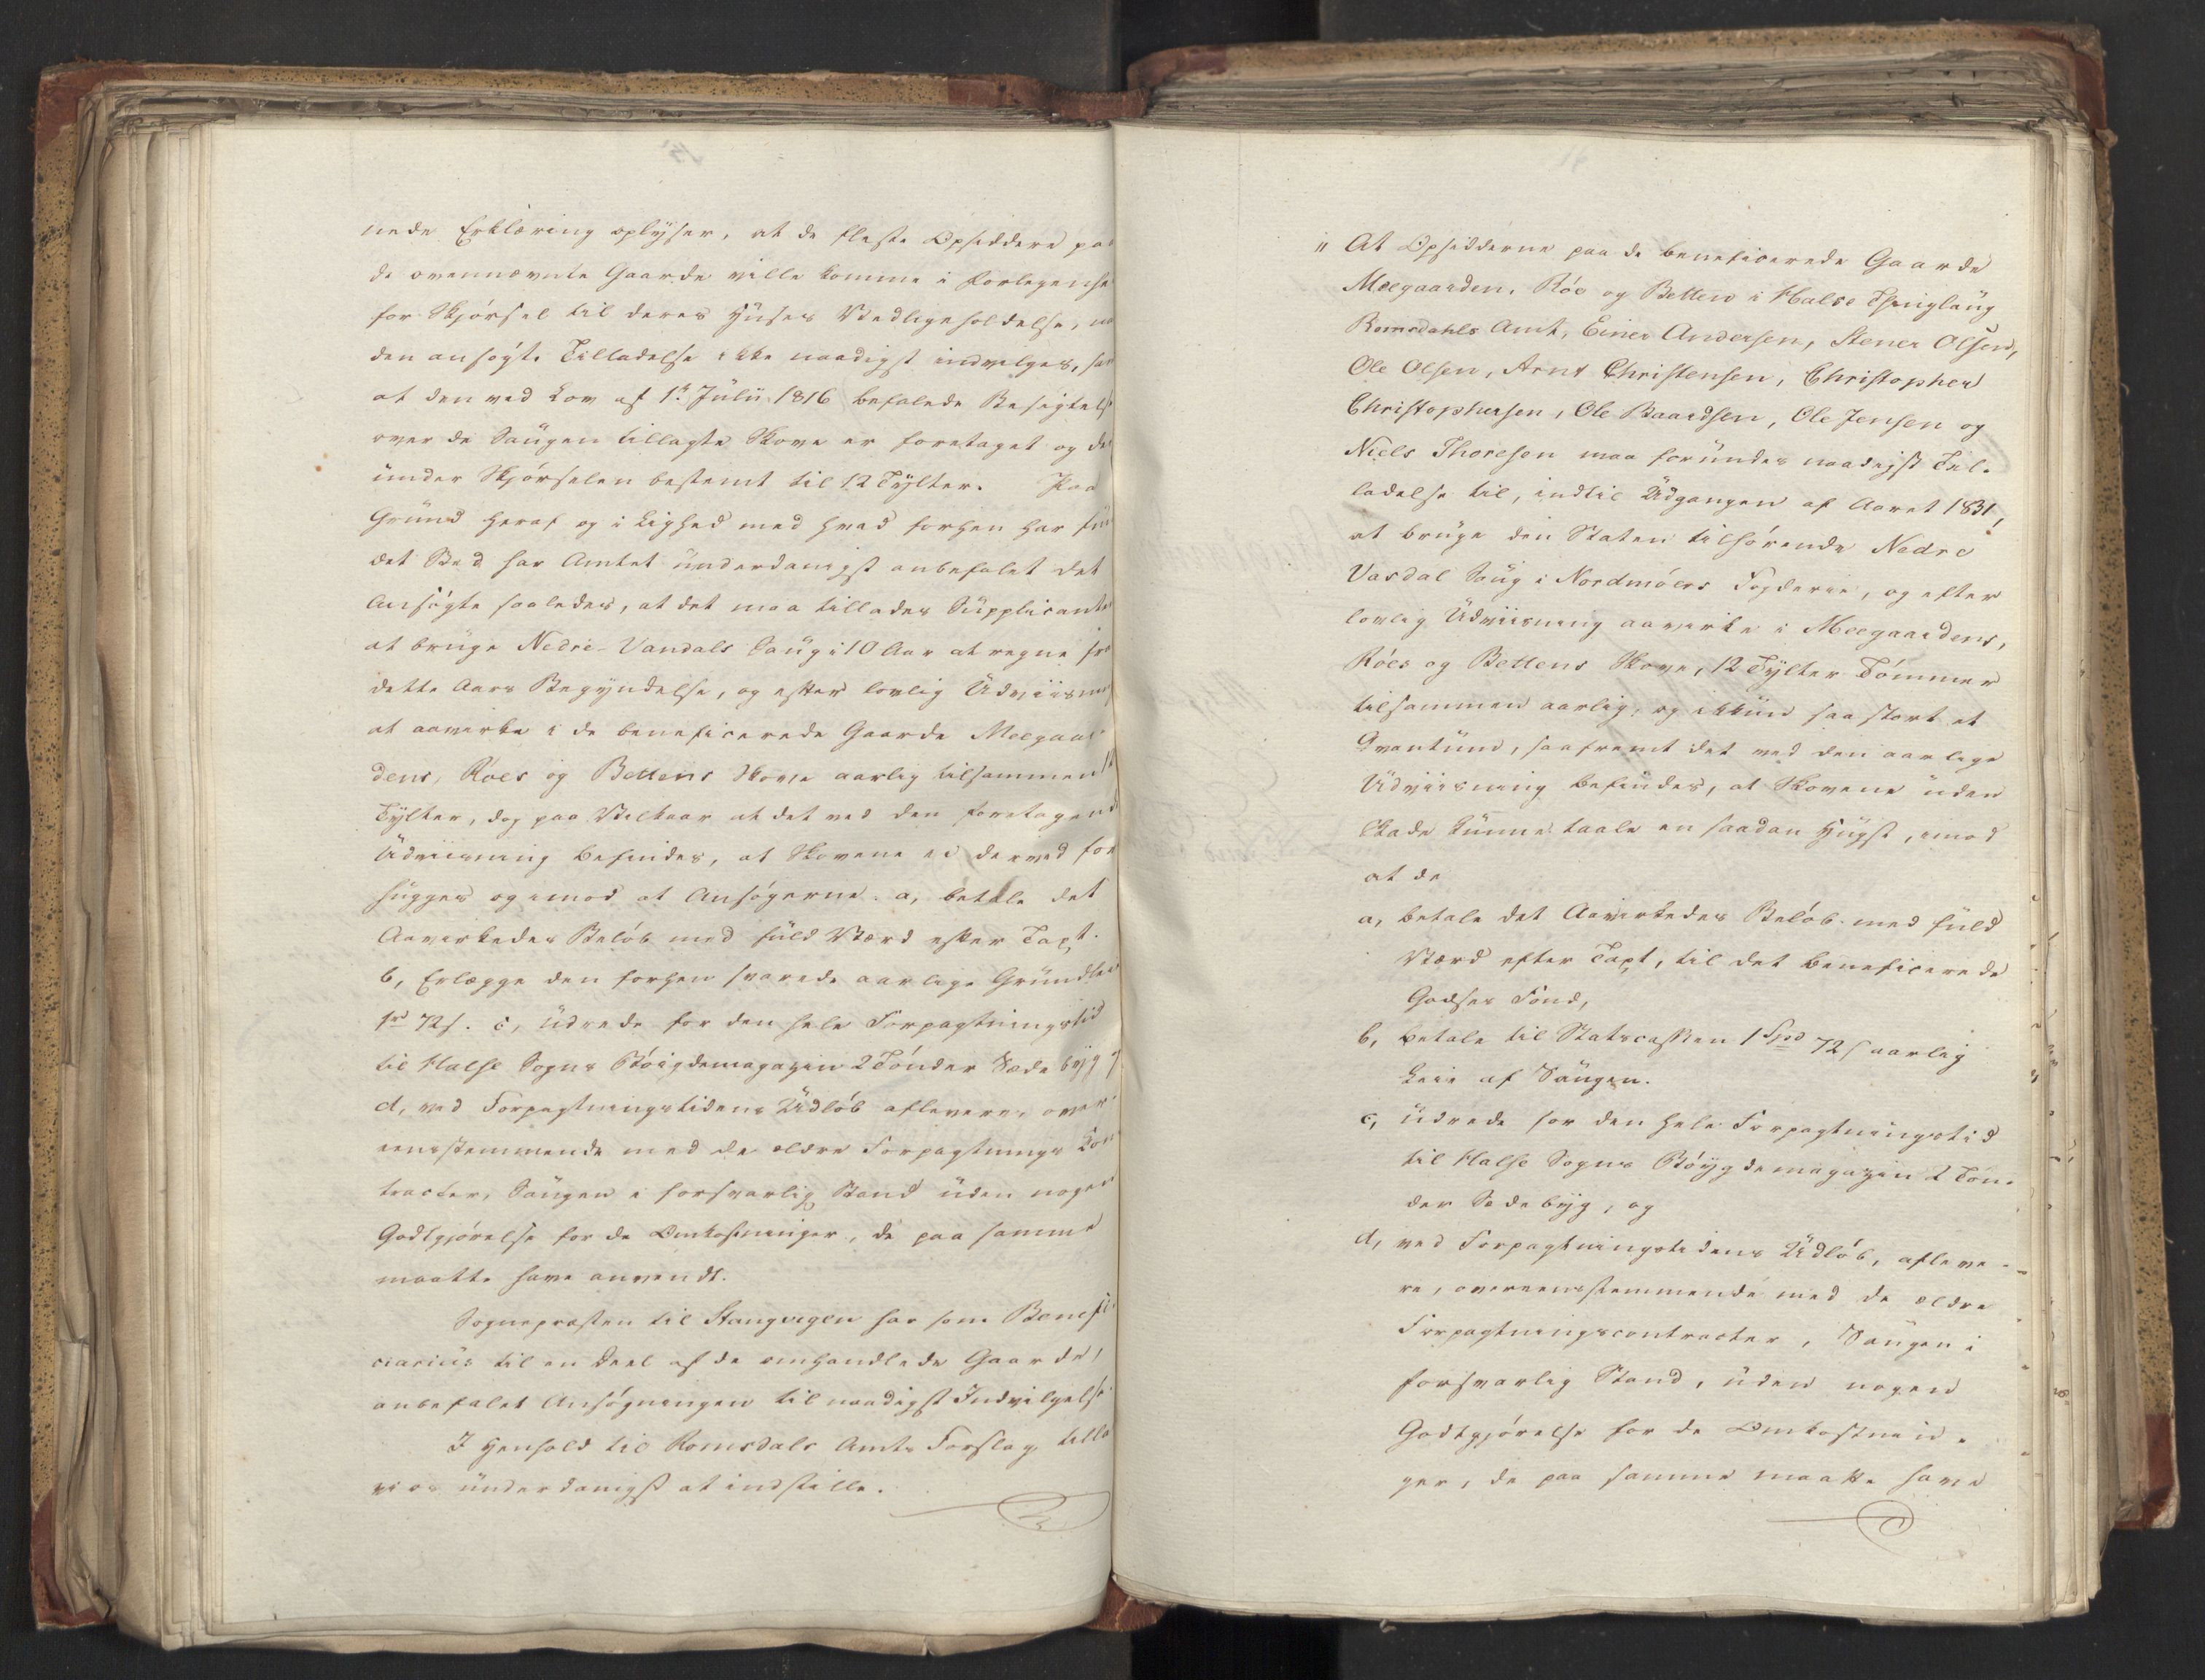 nede Erklæring oplyser, at de fleste Opsiddere paa
de ovennævnte Gaarde ville komme i Forlegenhe
for Skjørsel til deres Huses Vedligeholdelse, na
den ansøgte Tilladelse ikke naadigst indvilges, sa
at den ved Lov af 1e Julii 1816 befalede Besigtels
over de Saugen tillagte Skove er foretaget og de
under Skjørselen bestemt til 12 Tylter. Paa
Grund heraf og i Lighed med hvad forhen har fun
det Sted har Amtet underdanigst anbefalet det
Ansøgte saaledes, at det maa tillades Supplicante
at bruge Nedre-Vandals Saug i 10 Aar at regne fra
dette Aars Begyndelse, og efter lovlig Udviisning
at aavirke i de beneficerede Gaarde Meegaar-
dens, Róes og Bettens Skove aarlig tilsammen 12
Tylter, dog paa Vilkaar at det ved den foretagend
Udviisning befindes, at Skovene ei derved for
hugges og imod at Ansøgerne. a, betale det
Aavirkedes Beløb med fuld Værd efter Taxt.
b, Erlægge den forhen svarede aarlige Grundlei
1 72 s. c, Udrede for den hele Forpagtningstid
til Halse Sogns Bøigdemagazin 2 Tønder Sædebyg og
d, ved Forpagtningstidens Udløb aflevere, over-
eensstemmende med de ældre Forpagtnings Con
tracter, Saugen i forsvarlig Stand uden nogen
Godtgjørelse for de Omkostninger, de paa samme
maatte have anvendt.
Sognepræsten til Stangvigen har som Benefi-
ciarius til en Deel af de omhandlede Gaarde,
anbefalet Ansøgningen til naadigst Indvilgelse.
I Henhold til Romsdals Amts Forslag tilla
vi os underdanigst at indstille.
" At Opsidderne paa de beneficerede Gaarde
Meegaarden, Róe og Betten i Halse Thinglaug
Romsdahls Amt, Einer Andersen, Stener Olsen,
Ole Olsen, Arnt Christensen, Christopher
Christophersen, Ole Baardsen, Ole Jensen og
Niels Thoresen maa forundes naadigst Til-
ladelse til, indtil Udgangen af Aaret 1831,
at bruge den Staten tilhørende Nedre
Vasdal Saug i Nordmøers Fogderie, og efter
lovlig Udviisning aavirke i Meegaardens,
Róes og Bettens Skove, 12 Tylter Tømmer
tilsammen aarlig, og ikkun saa stort et
Qvantum, saafremt det ved den aarlige
Udviisning befindes, at Skovene uden
Skade kunne taale en saadan Hugst, imod
at de
a, betale det Aavirkedes Beløb med fuld
Værd efter Taxt, til det beneficerede
Godses Fond,
b, betale til Statscassen 1 Spd 72 s aarlig
Leie af Saugen.
c, Udrede for den hele Forpagtningstid
til Halse Sogns Bøygdemagazin 2 Tøn-
der Sædebyg, og
d, ved Forpagtningstidens Udløb, afleve-
re, overeensstemmende med de ældre
Forpagtningscontracter, Saugen i
forsvarlig Stand, uden nogen
Godtgjørelse for de Omkostnin-
ger, de paa samme maatte have